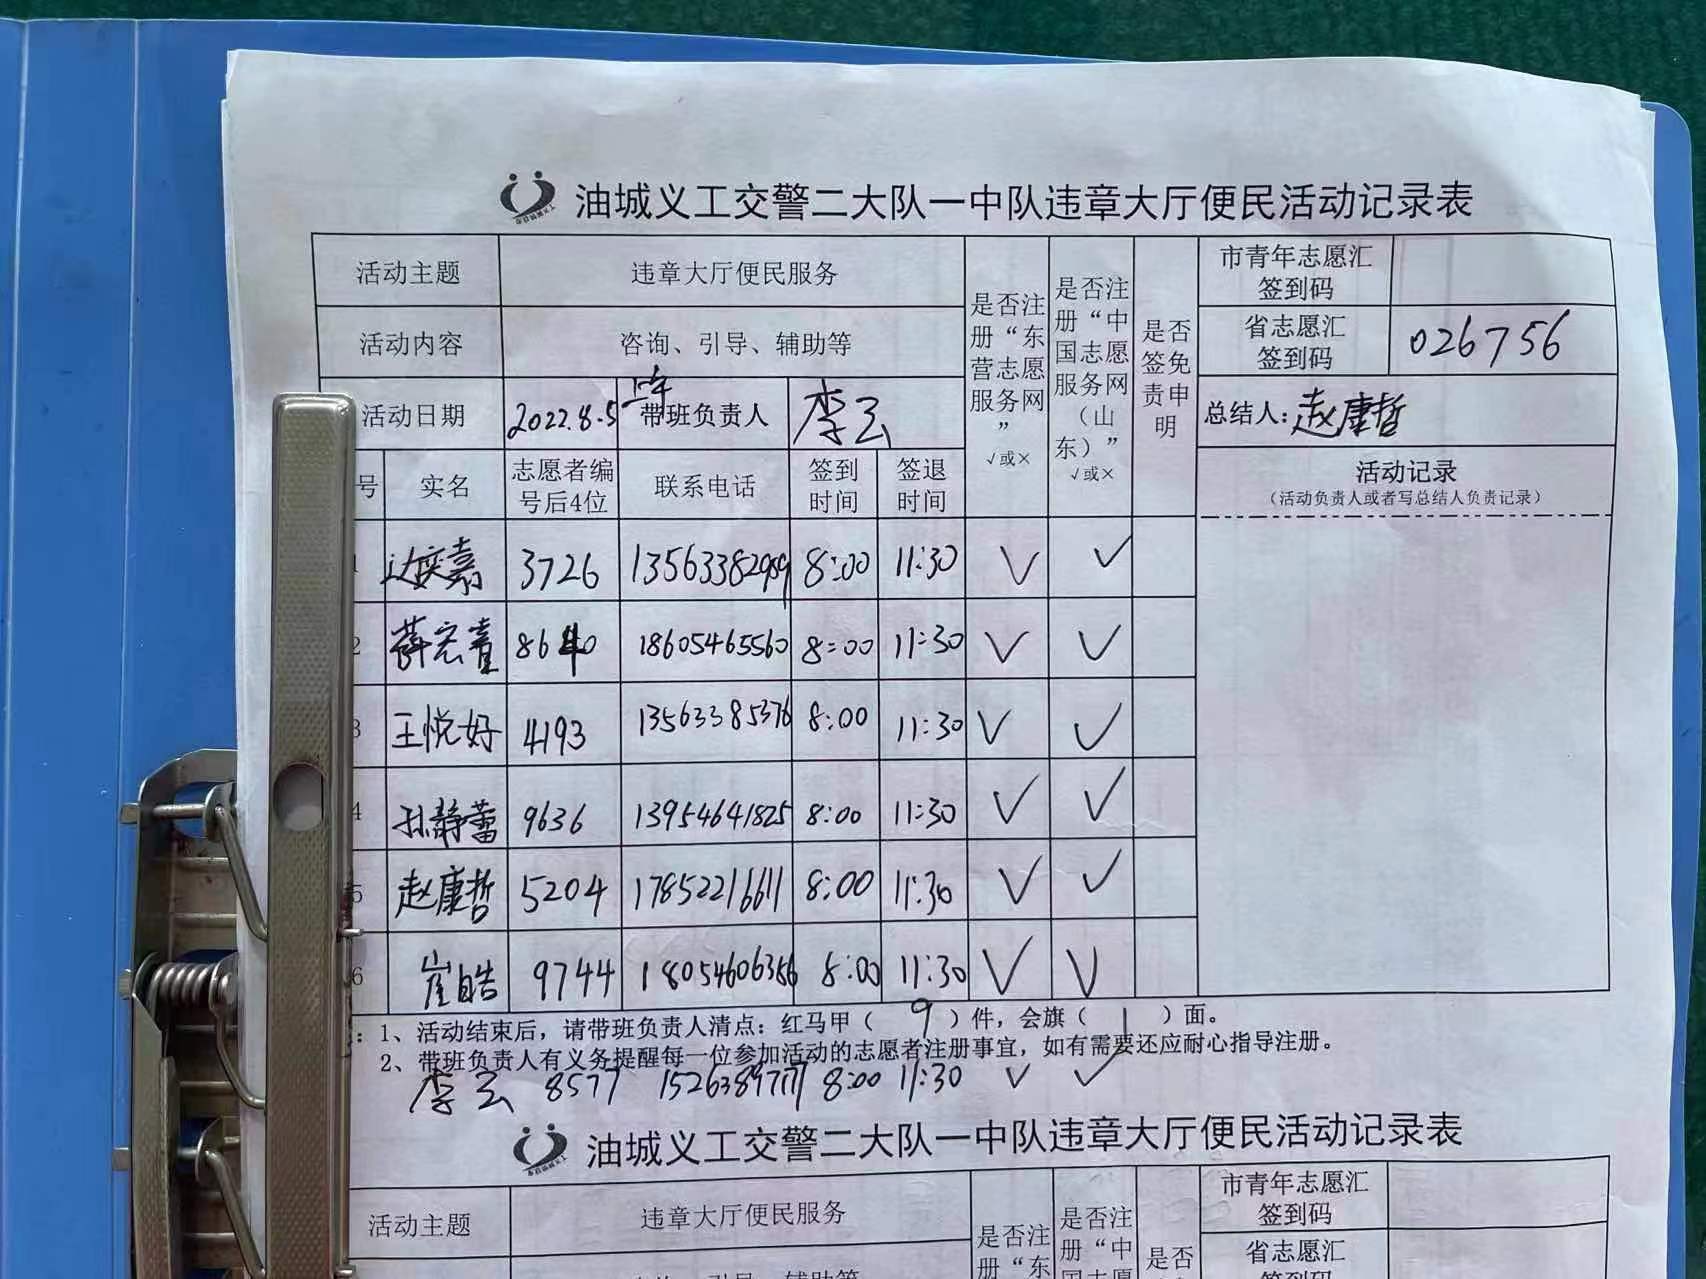 油城义工交警二大队一中队违章大厅便民活动记录表
活动主题 违章大厅便民服务 是否注册“东营志愿服务网” √或× 是否注册“中国志愿服务网（山东）” √或× 是否签免责申明 市青年志愿汇签到码
活动内容 咨询、引导、辅助等 省志愿汇签到码 026756
活动日期 2022.8.5 上午 带班负责人 李云 总结人:赵康哲
号 实名 志愿者编号后4位 联系电话 签到时间 签退时间 活动记录
（活动负责人或者写总结人负责记录）
3726 8:00 11:30 √ √
2 薛宏喜 8640 18605465560 8:00 11:30 √ √
3 王悦好 4193 13563385376 8:00 11:30 √ √
4 孙静蕾 9636 13954641825 8:00 11:30 √ √
5 赵康哲 5204 17852216611 8:00 11:30 √ √
6 崔皓 9744 8:00 11:30 √ √
：1、活动结束后，请带班负责人清点：红马甲（ 9 ）件，会旗（ 1 ）面。
2、带班负责人有义务提醒每一位参加活动的志愿者注册事宜，如有需要还应耐心指导注册。
李云 8577 8:00 11:30 √ √
油城义工交警二大队一中队违章大厅便民活动记录表
活动主题 违章大厅便民服务 是否注册“东 是否注册“中国志愿 是否 市青年志愿汇签到码
咨询、引导、辅助等 省志愿汇签到码